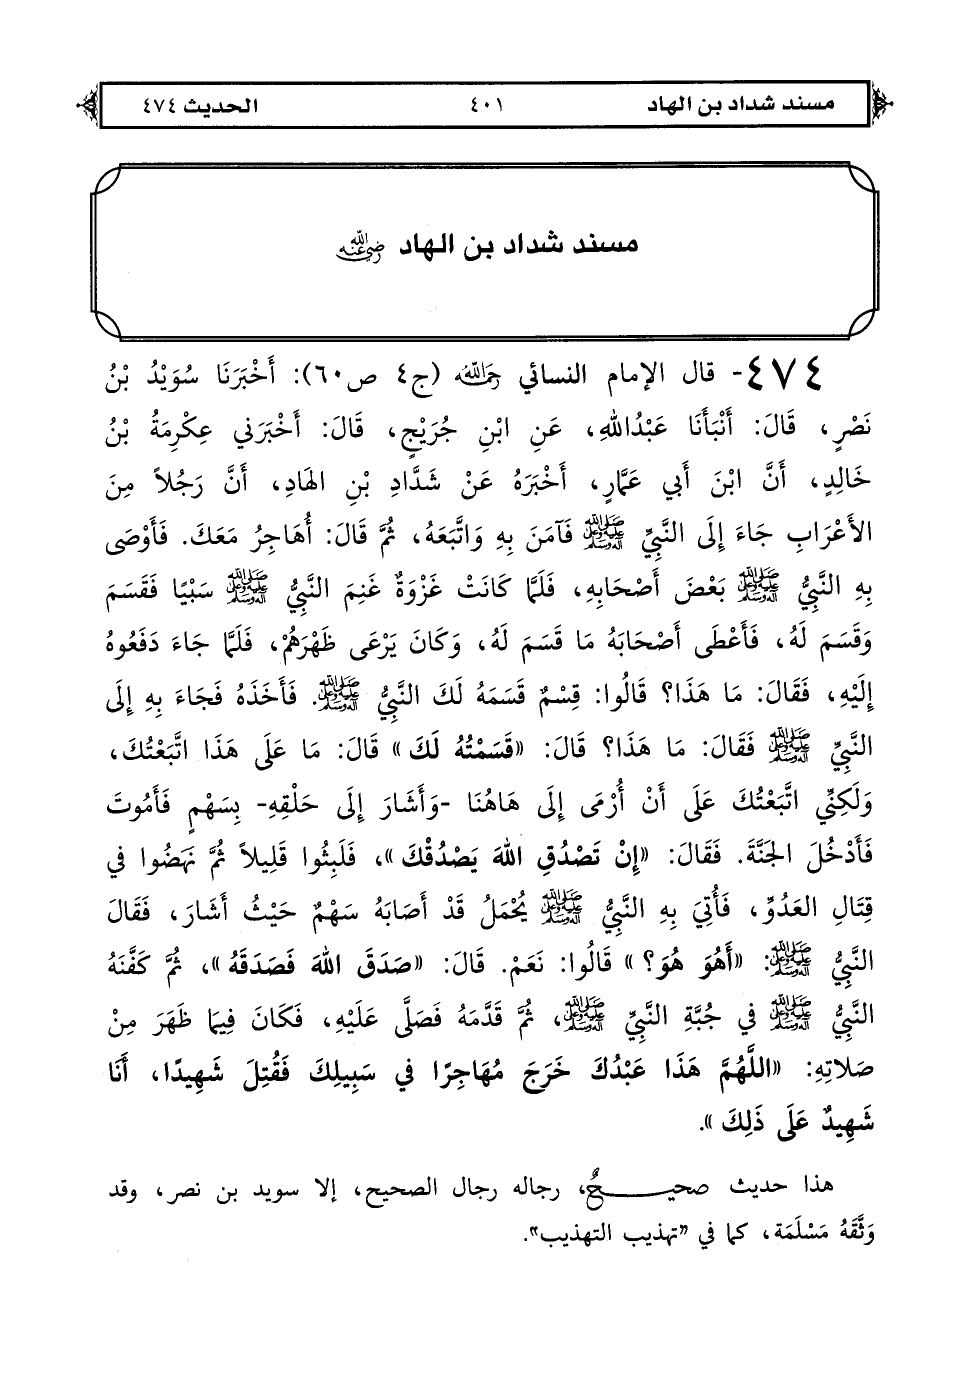 مسند شداد بن الهاد ٤٠١ الحديث ٤٧٤
مسند شداد بن الهاد رضي الله عنه
٤٧٤- قال الإمام النسائي رحمه الله (ج٤ ص٦٠): أَخْبَرَنَا سُوَيْدُ بْنُ
نَصْرٍ، قَالَ: أَنْبَأَنَا عَبْدُاللهِ، عَنِ ابْنِ جُرَيْجٍ، قَالَ: أَخْبَرَنِي عِكْرِمَةُ بْنُ
خَالِدٍ، أَنَّ ابْنَ أَبِي عَمَّارٍ، أَخْبَرَهُ عَنْ شَدَّادِ بْنِ الهَادِ، أَنَّ رَجُلاً مِنَ
الأَعْرَابِ جَاءَ إِلَى النَّبِيِّ ﷺ فَآمَنَ بِهِ وَاتَّبَعَهُ، ثُمَّ قَالَ: أُهَاجِرُ مَعَكَ. فَأَوْصَى
بِهِ النَّبِيُّ ﷺ بَعْضَ أَصْحَابِهِ، فَلَمَّا كَانَتْ غَزْوَةٌ غَنِمَ النَّبِيُّ ﷺ سَبْيًا فَقَسَمَ
وَقَسَمَ لَهُ، فَأَعْطَى أَصْحَابَهُ مَا قَسَمَ لَهُ، وَكَانَ يَرْعَى ظَهْرَهُمْ، فَلَمَّا جَاءَ دَفَعُوهُ
إِلَيْهِ، فَقَالَ: مَا هَذَا؟ قَالُوا: قِسْمٌ قَسَمَهُ لَكَ النَّبِيُّ ﷺ. فَأَخَذَهُ فَجَاءَ بِهِ إِلَى
النَّبِيِّ ﷺ فَقَالَ: مَا هَذَا؟ قَالَ: «قَسَمْتُهُ لَكَ» قَالَ: مَا عَلَى هَذَا اتَّبَعْتُكَ،
وَلَكِنِّي اتَّبَعْتُكَ عَلَى أَنْ أُرْمَى إِلَى هَاهُنَا -وَأَشَارَ إِلَى حَلْقِهِ- بِسَهْمٍ فَأَمُوتَ
فَأَدْخُلَ الجَنَّةَ. فَقَالَ: «إِنْ تَصْدُقِ اللهَ يَصْدُقْكَ»، فَلَبِثُوا قَلِيلاً ثُمَّ نَهَضُوا فِي
قِتَالِ العَدُوِّ، فَأُتِيَ بِهِ النَّبِيُّ ﷺ يُحْمَلُ قَدْ أَصَابَهُ سَهْمٌ حَيْثُ أَشَارَ، فَقَالَ
النَّبِيُّ ﷺ: «أَهُوَ هُوَ؟» قَالُوا: نَعَمْ. قَالَ: «صَدَقَ اللهَ فَصَدَقَهُ»، ثُمَّ كَفَّنَهُ
النَّبِيُّ ﷺ فِي جُبَّةِ النَّبِيِّ ﷺ، ثُمَّ قَدَّمَهُ فَصَلَّى عَلَيْهِ، فَكَانَ فِيمَا ظَهَرَ مِنْ
صَلاتِهِ: «اللَّهُمَّ هَذَا عَبْدُكَ خَرَجَ مُهَاجِرًا فِي سَبِيلِكَ فَقُتِلَ شَهِيدًا، أَنَا
شَهِيدٌ عَلَى ذَلِكَ».
هذا حديث صحيـــــحٌ، رجاله رجال الصحيح، إلا سويد بن نصر، وقد
وَثَّقَهُ مَسْلَمَة، كما في "تهذيب التهذيب".